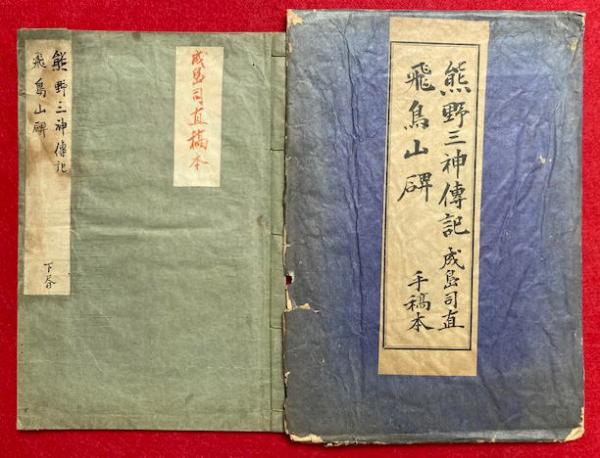 熊野三神傳記
飛鳥山碑
成島司直
手稿本
成島司直稿本
熊野三神傳記
飛鳥山碑